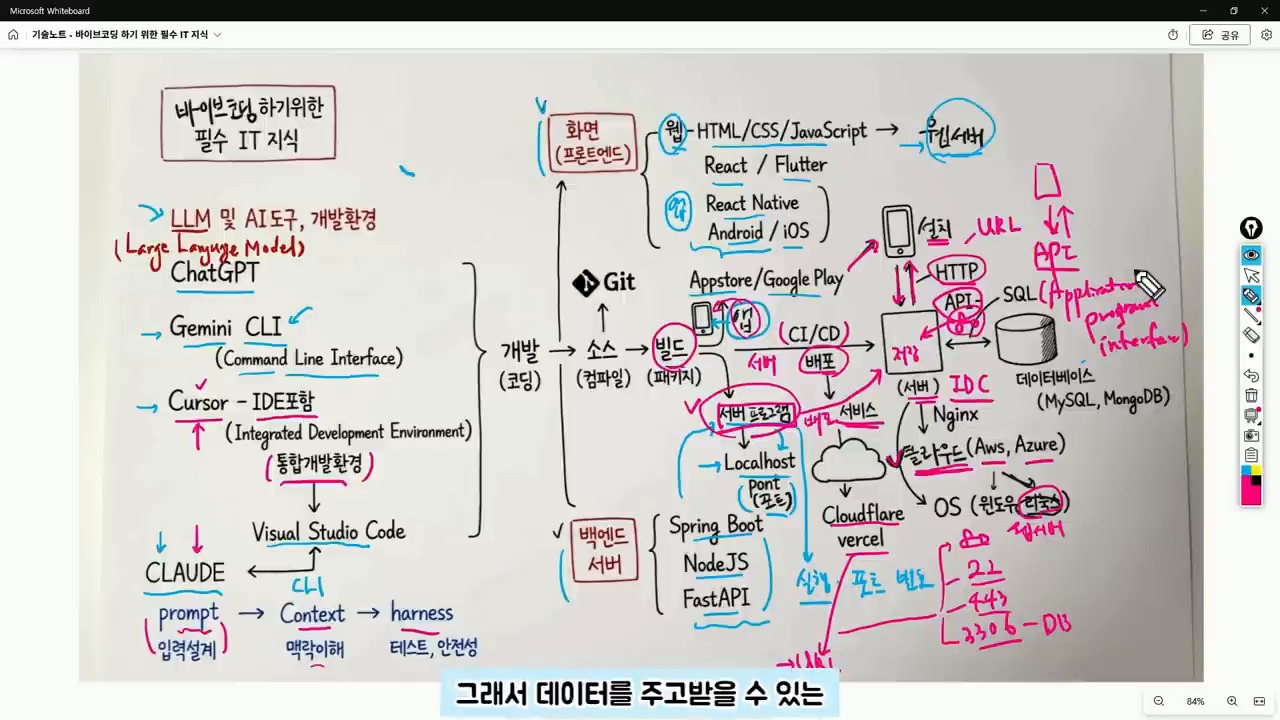 Microsoft Whiteboard
기술노트 - 바이브코딩 하기 위한 필수 IT 지식
공유
바이브코딩하기위한
필수 IT 지식
LLM 및 AI도구, 개발환경
(Large Languge Model)
ChatGPT
Gemini CLI
(Command Line Interface)
Cursor - IDE포함
(Integrated Development Environment)
(통합개발환경)
Visual Studio Code
CLAUDE
CLI
prompt → Context → harness
(입력설계)
맥락이해
테스트, 안전성
개발 → 소스 → 빌드
(코딩) (컴파일) (패키지)
Git
화면
(프론트엔드)
웹 - HTML/CSS/JavaScript → 웹서버
React / Flutter
앱
React Native
Android / iOS
Appstore/Google Play
앱
설치
URL
HTTP
API
SQL
API
(Application
program
interface)
(CI/CD)
서버
배포
저장
(서버) IDC
데이터베이스
(MySQL, MongoDB)
서버 프로그램
배포 서비스
Nginx
클라우드(Aws, Azure)
Localhost
port
(포트)
Cloudflare
vercel
OS (윈도우, 리눅스)
웹서버
백엔드
서버
Spring Boot
NodeJS
FastAPI
실행 포트 번호
80
22
443
3306 - DB
→ URL
그래서 데이터를 주고받을 수 있는
84%